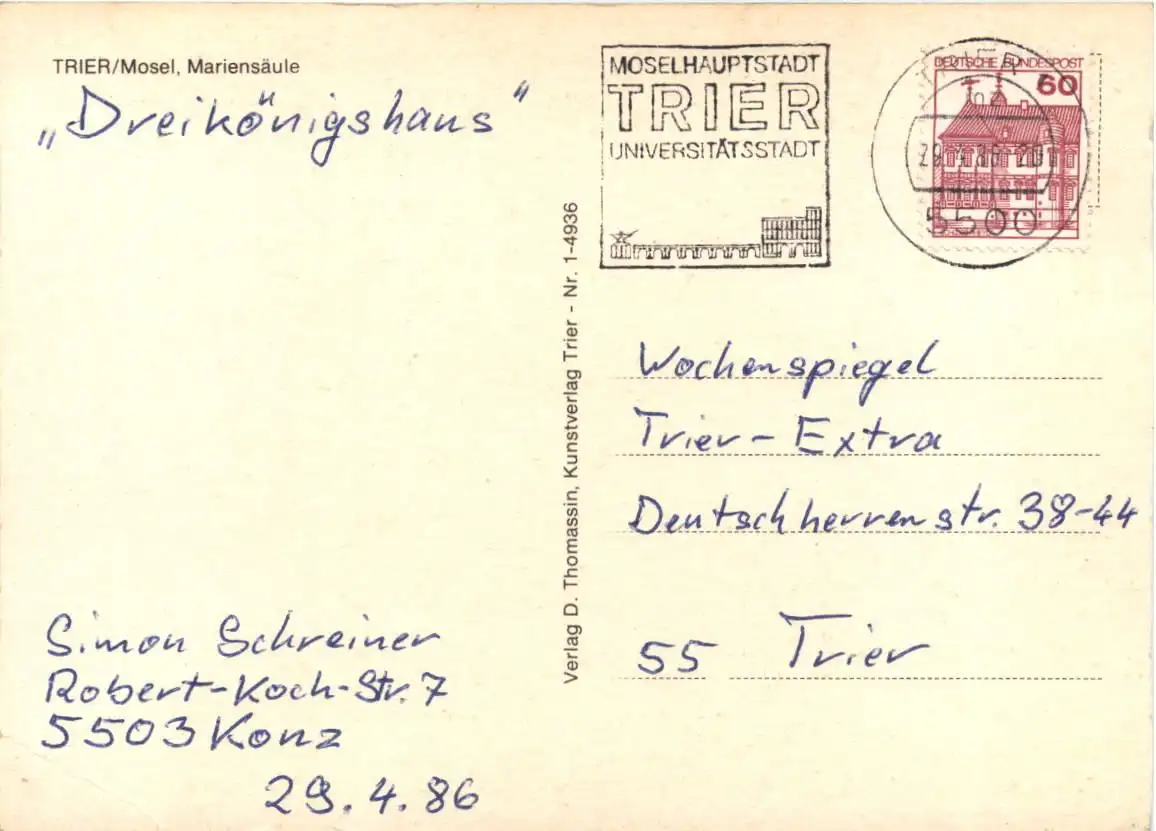 TRIER/Mosel, Mariensäule
„Dreikönigshaus“
MOSELHAUPTSTADT
TRIER
UNIVERSITÄTSSTADT
TRIER
DEUTSCHE BUNDESPOST
60
29.4.86-20
5500
Verlag D. Thomassin, Kunstverlag Trier - Nr. 1-4936
Wochenspiegel
Trier-Extra
Deutschherrenstr. 38-44
55 Trier
Simon Schreiner
Robert-Koch-Str. 7
5503 Konz
29.4.86